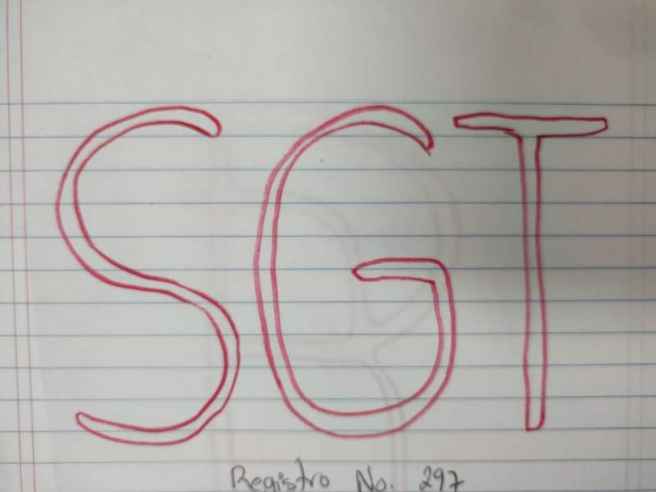 SGT
Registro No. 297